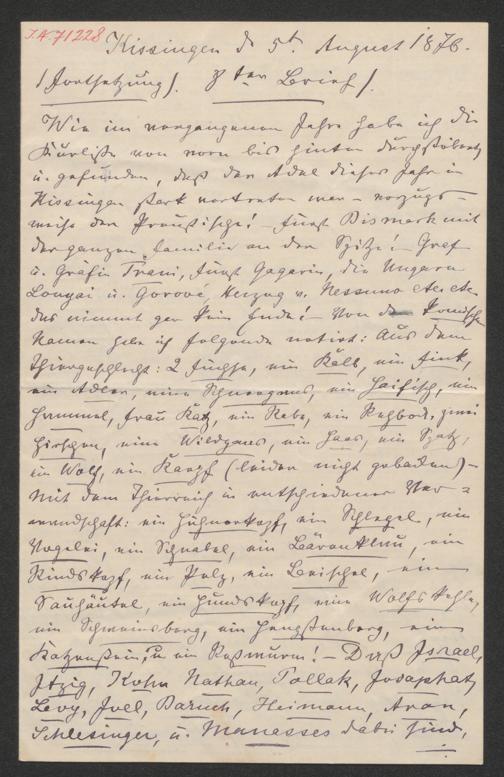 I.N 71228
Kissingen d 5t August 1876.
(Fortsetzung). 8ter Brief).
Wie im vergangenen Jahre habe ich die
Kurliste von vorn bis hinten durchstöbert
u. gefunden, daß der Adel dieses Jahr in
Kissingen stark vertreten war – vorzugs-
weise der Preußische! – Fürst Bismark mit
der ganzen Familie an der Spitze! – Graf
u. Gräfin Trani, Fürst Gagarin, die Ungarn
Lonyai u. Gorové, Herzog v. etc. etc.
das nimmt gar kein Ende! – Von
Namen habe ich folgende notirt: Aus dem
Thiergeschlecht: 2 Füchse, ein Kalb, ein Fink,
ein Adler, eine ein Haifisch, ein
Hammel, Frau Katz, ein Rabe, ein Rehbock, zwei
Hirschen, eine Wildgans, ein Haas, ein Spatz,
ein Wolf, ein Karpf (leider nicht gebacken) –
Mit dem Thierreich in entschiedener Ver-
wandschaft: ein Hühnerkopf, ein Schlegel, ein
Vogelei, ein Schnabel, ein Bärenklau, ein
Rindskopf, ein Pelz, ein Beischel, ein
Sauhäutel, ein Hundskopf, eine Wolfskehle,
ein Schweinsberg, ein Hengstenberg, ein
Katzenstein, u ein – Daß Israel,
Itzig, Kohn Nathan, Pollak, Josaphat,
Levy, Joel, Baruch, Heimann, Aron,
Schlesinger, u. Manasses dabei sind,